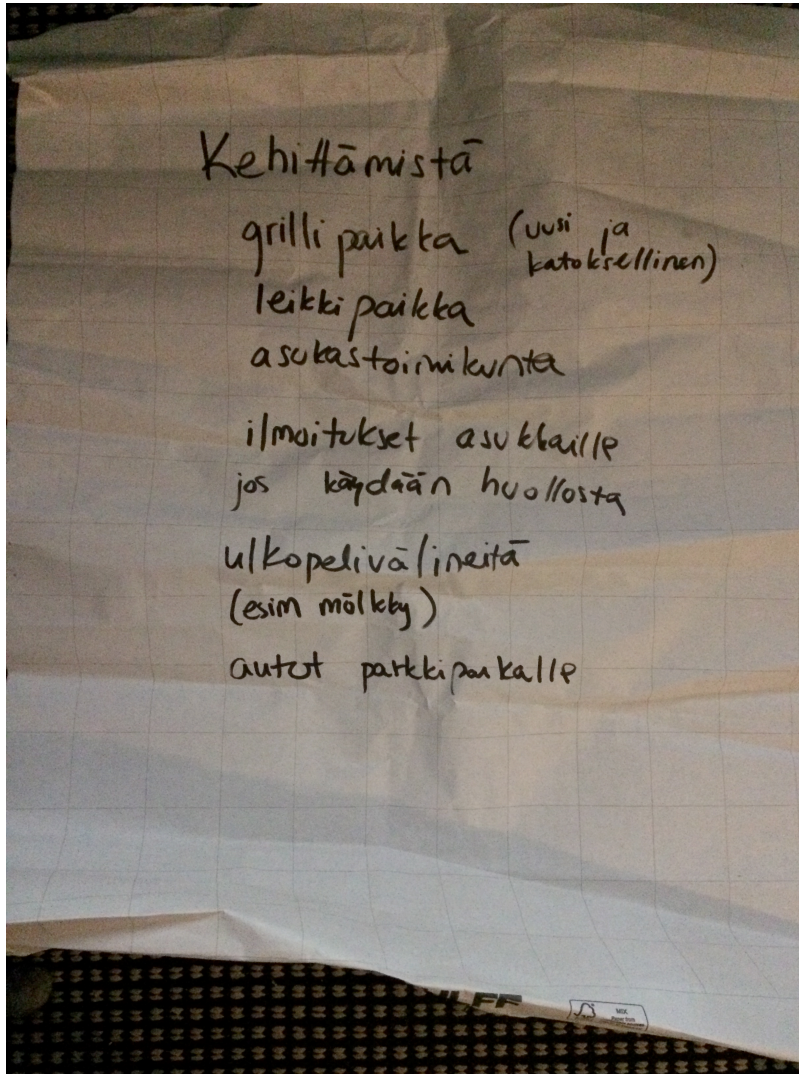 Kehittämistä
grilli paikka (uusi ja
katoksellinen)
leikki paikka
asukastoimikunta
ilmoitukset asukkaille
jos käydään huollosta
ulkopelivälineitä
(esim mölkky)
autot parkkipaikalle
FSC
MIX